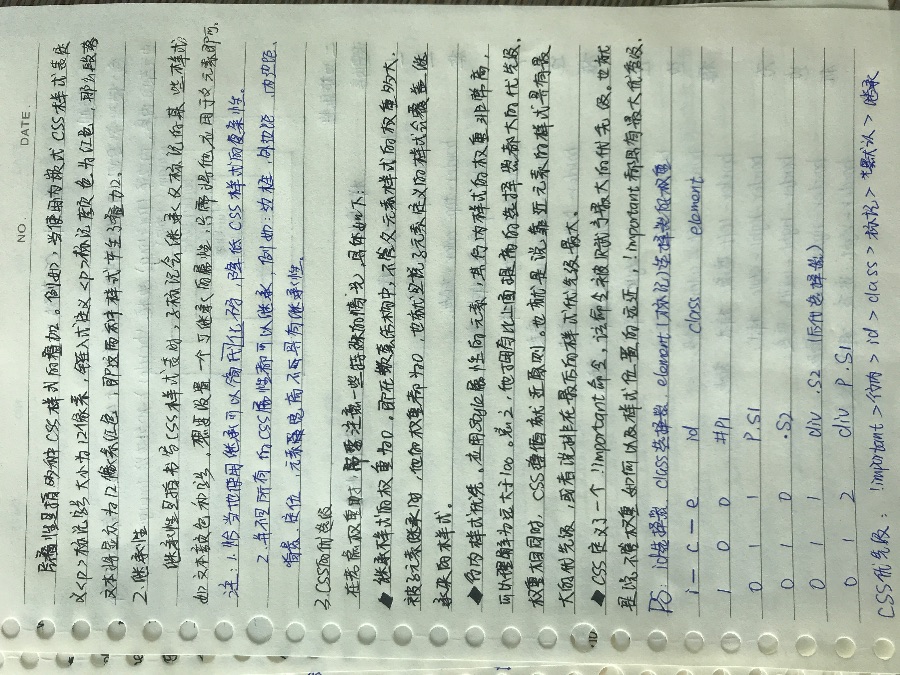 NO.
DATE.
层叠性是指多种CSS样式的叠加。例如,当使用内嵌式CSS样式表定
义<p>标记字号大小为12像素,链入式定义<p>标记颜色为红色,那么段落
文本将显示为12像素红色,即这两种样式产生了叠加。
2.继承性
继承性是指书写CSS样式表时,子标记会继承父标记的某些样式,
如文本颜色和字号,想要设置一个可继承的属性,只需将他应用于父元素即可。
注:1.恰当地使用继承可以简化代码,降低CSS样式的复杂性。
2.并不是所有的CSS属性都可以继承,例如:边框,外边距,内边距,
背景,定位,元素高度属不具有继承性。
3.CSS的优先级
在考虑权重时,需要注意一些特殊的情况,具体如下:
◆继承样式的权重为0。即在嵌套结构中,不管父元素样式的权重多大,
被子元素继承时,他的权重都为0,也就是说子元素定义的样式会覆盖继
承来的样式。
◆行内样式优先。应用style属性的元素,其行内样式的权重非常高,
可以理解为远大于100。总之,他拥有比上面提高的选择器都大的优先级。
权重相同时,CSS遵循就近原则。也就是说靠近元素的样式具有最
大的优先级,或者说排在最后的样式优先级最大。
◆CSS定义了一个!important命令,该命令被赋予最大的优先级。也就
是说不管权重如何以及样式位置的远近,!important都具有最大优先级。
PS: id选择器,class选择器,element(标记)选择器的权重
i - c - e id class element
1 0 0 #P1
0 1 1 P.S1
0 1 0 .S2
0 1 1 div .S2 (后代选择器)
0 1 2 div P.S1
CSS优先级: !important>行内>id>class>标记>*默认>继承